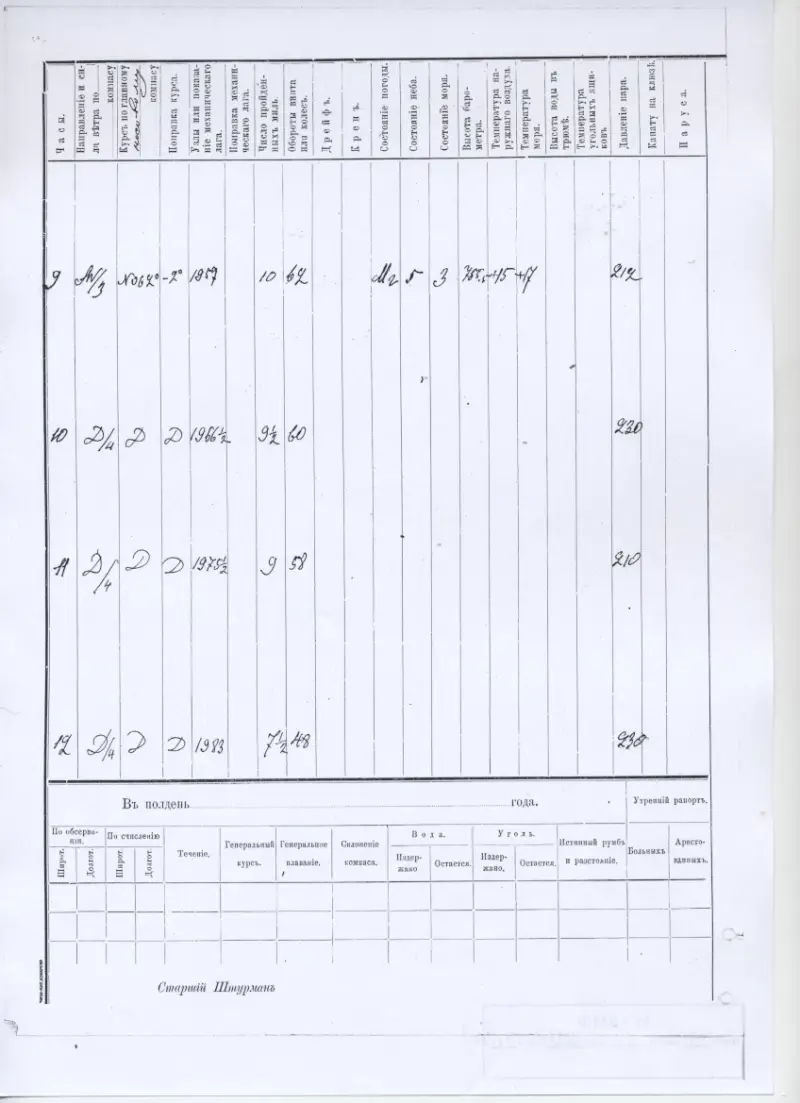 Часы.
Направленіе и сила вѣтра по компасу
Курсъ по главному компасу
Поправка курса.
Узлы или показаніе механическаго лага.
Поправка механическаго лага.
Число пройденныхъ миль.
Обороты винта или колесъ.
Дрейфъ.
Кренъ.
Состояніе погоды.
Состояніе неба.
Состояніе моря.
Высота барометра.
Температура наружнаго воздуха.
Температура моря.
Высота воды въ трюмѣ.
Температура угольныхъ
Давленіе пара.
Канату на клюзѣ.
Паруса.
9 /3 -2° 1957 10 62 5 3 +15 +17 212
10 D/4 D D 1966½ 9½ 60 230
11 D/4 D D 1975½ 9 58 210
12 D/4 D D 1983 7½ 48 230
Въ полдень года.
Утренній рапортъ.
По обсервации.
По счисленію
Теченіе.
Генеральный курсъ.
Генеральное плаваніе.
Склоненіе компаса.
Вода.
Уголь.
Истинный румбъ и разстояніе.
Больныхъ
Арестованныхъ.
Широт. Долгот. Широт. Долгот.
Издержано Остается. Издержано. Остается.
Старшій Штурманъ